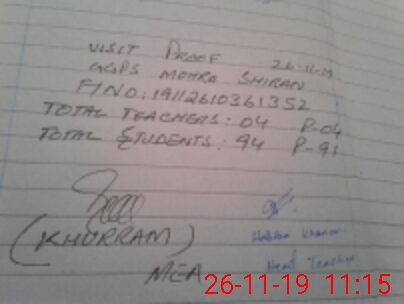 VISIT PROOF 26-11-19
GGPS MOHRA SHIRAN
F/NO: 19112610361352
TOTAL TEACHERS: 04 P-04
TOTAL STUDENTS: 94 P-91
(KHURRAM)
MEA
Head Teacher
26-11-19 11:15